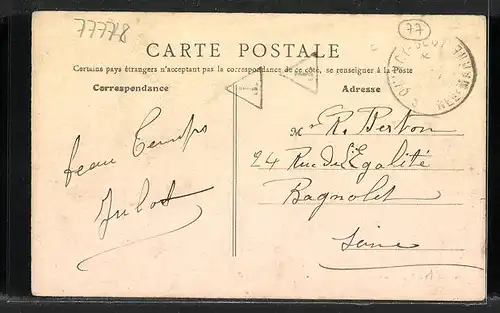 77778
77
CARTE POSTALE
Certains pays étrangers n'acceptant pas la correspondance de ce côté, se renseigner à la Poste
Correspondance
Adresse
beau Temps
Julot
Mr R. Berton
24 Rue de l'Egalité
Bagnolet
Seine